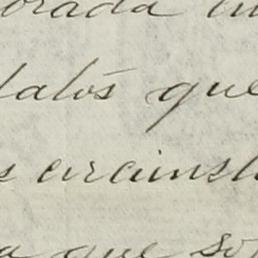 orada in
datos que
s circunst
a que so